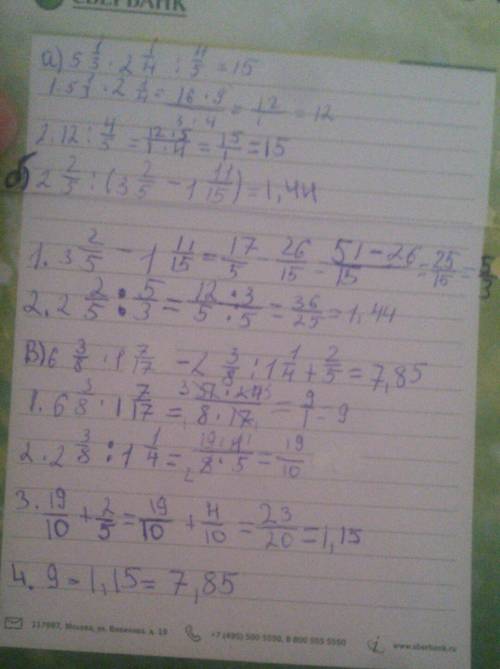 СБЕРБАНК
а) 5 1/3 · 2 1/4 : 4/5 = 15
1. 5 1/3 · 2 1/4 = 16 · 9 / 3 · 4 = 12/1 = 12
2. 12 : 4/5 = 12 · 5 / 1 · 4 = 15/1 = 15
б) 2 2/5 : (3 2/5 - 1 11/15) = 1,44
1. 3 2/5 - 1 11/15 = 17/5 - 26/15 = 51 - 26 / 15 = 25/15 = 5/3
2. 2 2/5 : 5/3 = 12 · 3 / 5 · 5 = 36/25 = 1,44
В) 6 3/8 · 1 7/17 - 2 3/8 : 1 1/4 + 2/5 = 7,85
1. 6 3/8 · 1 7/17 = 51 · 24 / 8 · 17 = 9/1 = 9
2. 2 3/8 : 1 1/4 = 19 · 4 / 8 · 5 = 19/10
3. 19/10 + 2/5 = 19/10 + 4/10 = 23/20 = 1,15
4. 9 - 1,15 = 7,85
117997, Москва, ул. Вавилова, д. 19 +7 (495) 500 5550, 8 800 555 5550 www.sberbank.ru